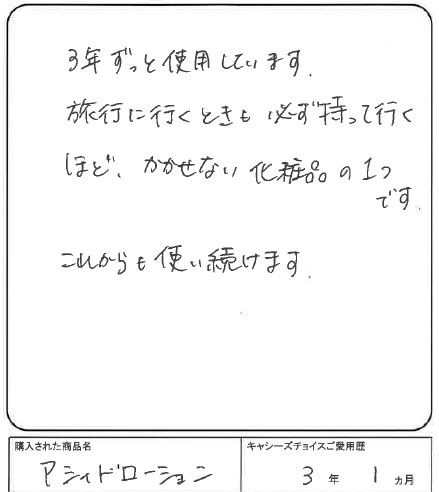 3年ずっと使用しています.
旅行に行くときも必ず持って行く
ほど、かかせない化粧品の1つ
です.
これからも使い続けます.
購入された商品名
アシィドローション
キャシーズチョイスご愛用歴
3年 1ヵ月